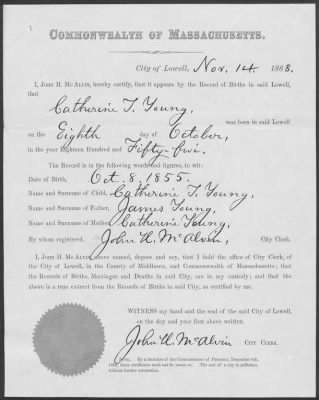 COMMONWEALTH OF MASSACHUSETTS.
City of Lowell, Nov. 14. 1868.
I, JOHN H. MCALVIN, hereby certify, that it appears by the Record of Births in said Lowell,
that
Catherine T. Young,
was born in said Lowell
on the Eighth day of October,
in the year Eighteen Hundred and Fifty-five.
The Record is in the following words and figures, to wit:
Date of Birth, Oct. 8, 1855.
Name and Surname of Child, Catherine T. Young,
Name and Surname of Father, James Young,
Name and Surname of Mother, Catherine Young,
By whom registered, John H. McAlvin, City Clerk.
I, JOHN H. MCALVIN, above named, depose and say, that I hold the office of City Clerk, of
the City of Lowell, in the County of Middlesex, and Commonwealth of Massachusetts; that
the Records of Births, Marriages and Deaths in said City, are in my custody; and that the
above is a true extract from the Records of Births in said City, as certified by me.
WITNESS my hand and the seal of the said City of Lowell,
on the day and year first above written.
John H. McAlvin CITY CLERK.
NOTE. By a decision of the Commissioner of Pensions, December 6th,
1864, these certificates need not be sworn to. The seal of a city is sufficient,
without further attestation.